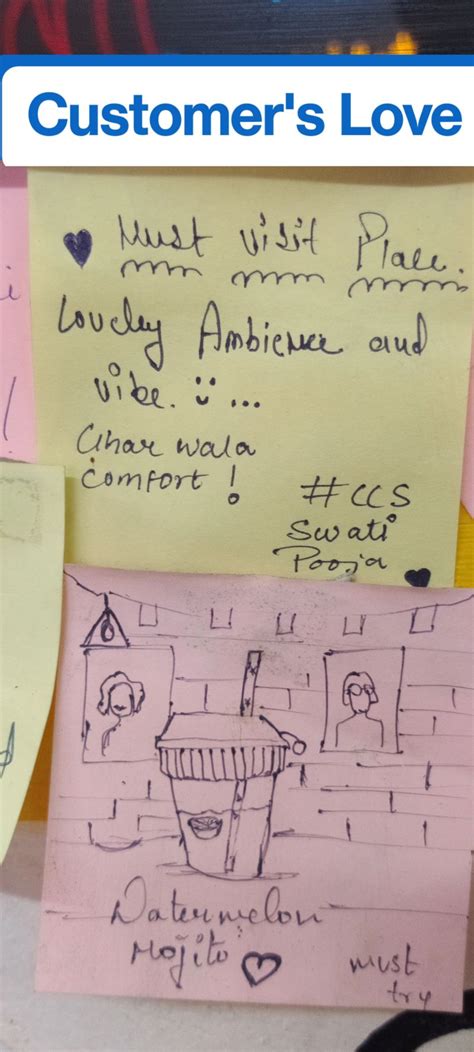 Customer's Love
Must visit Place.
Lovely Ambience and
vibe. ...
Ghar wala
comfort !
#CCS
Swati
Pooja
Watermelon
Mojito
must
try